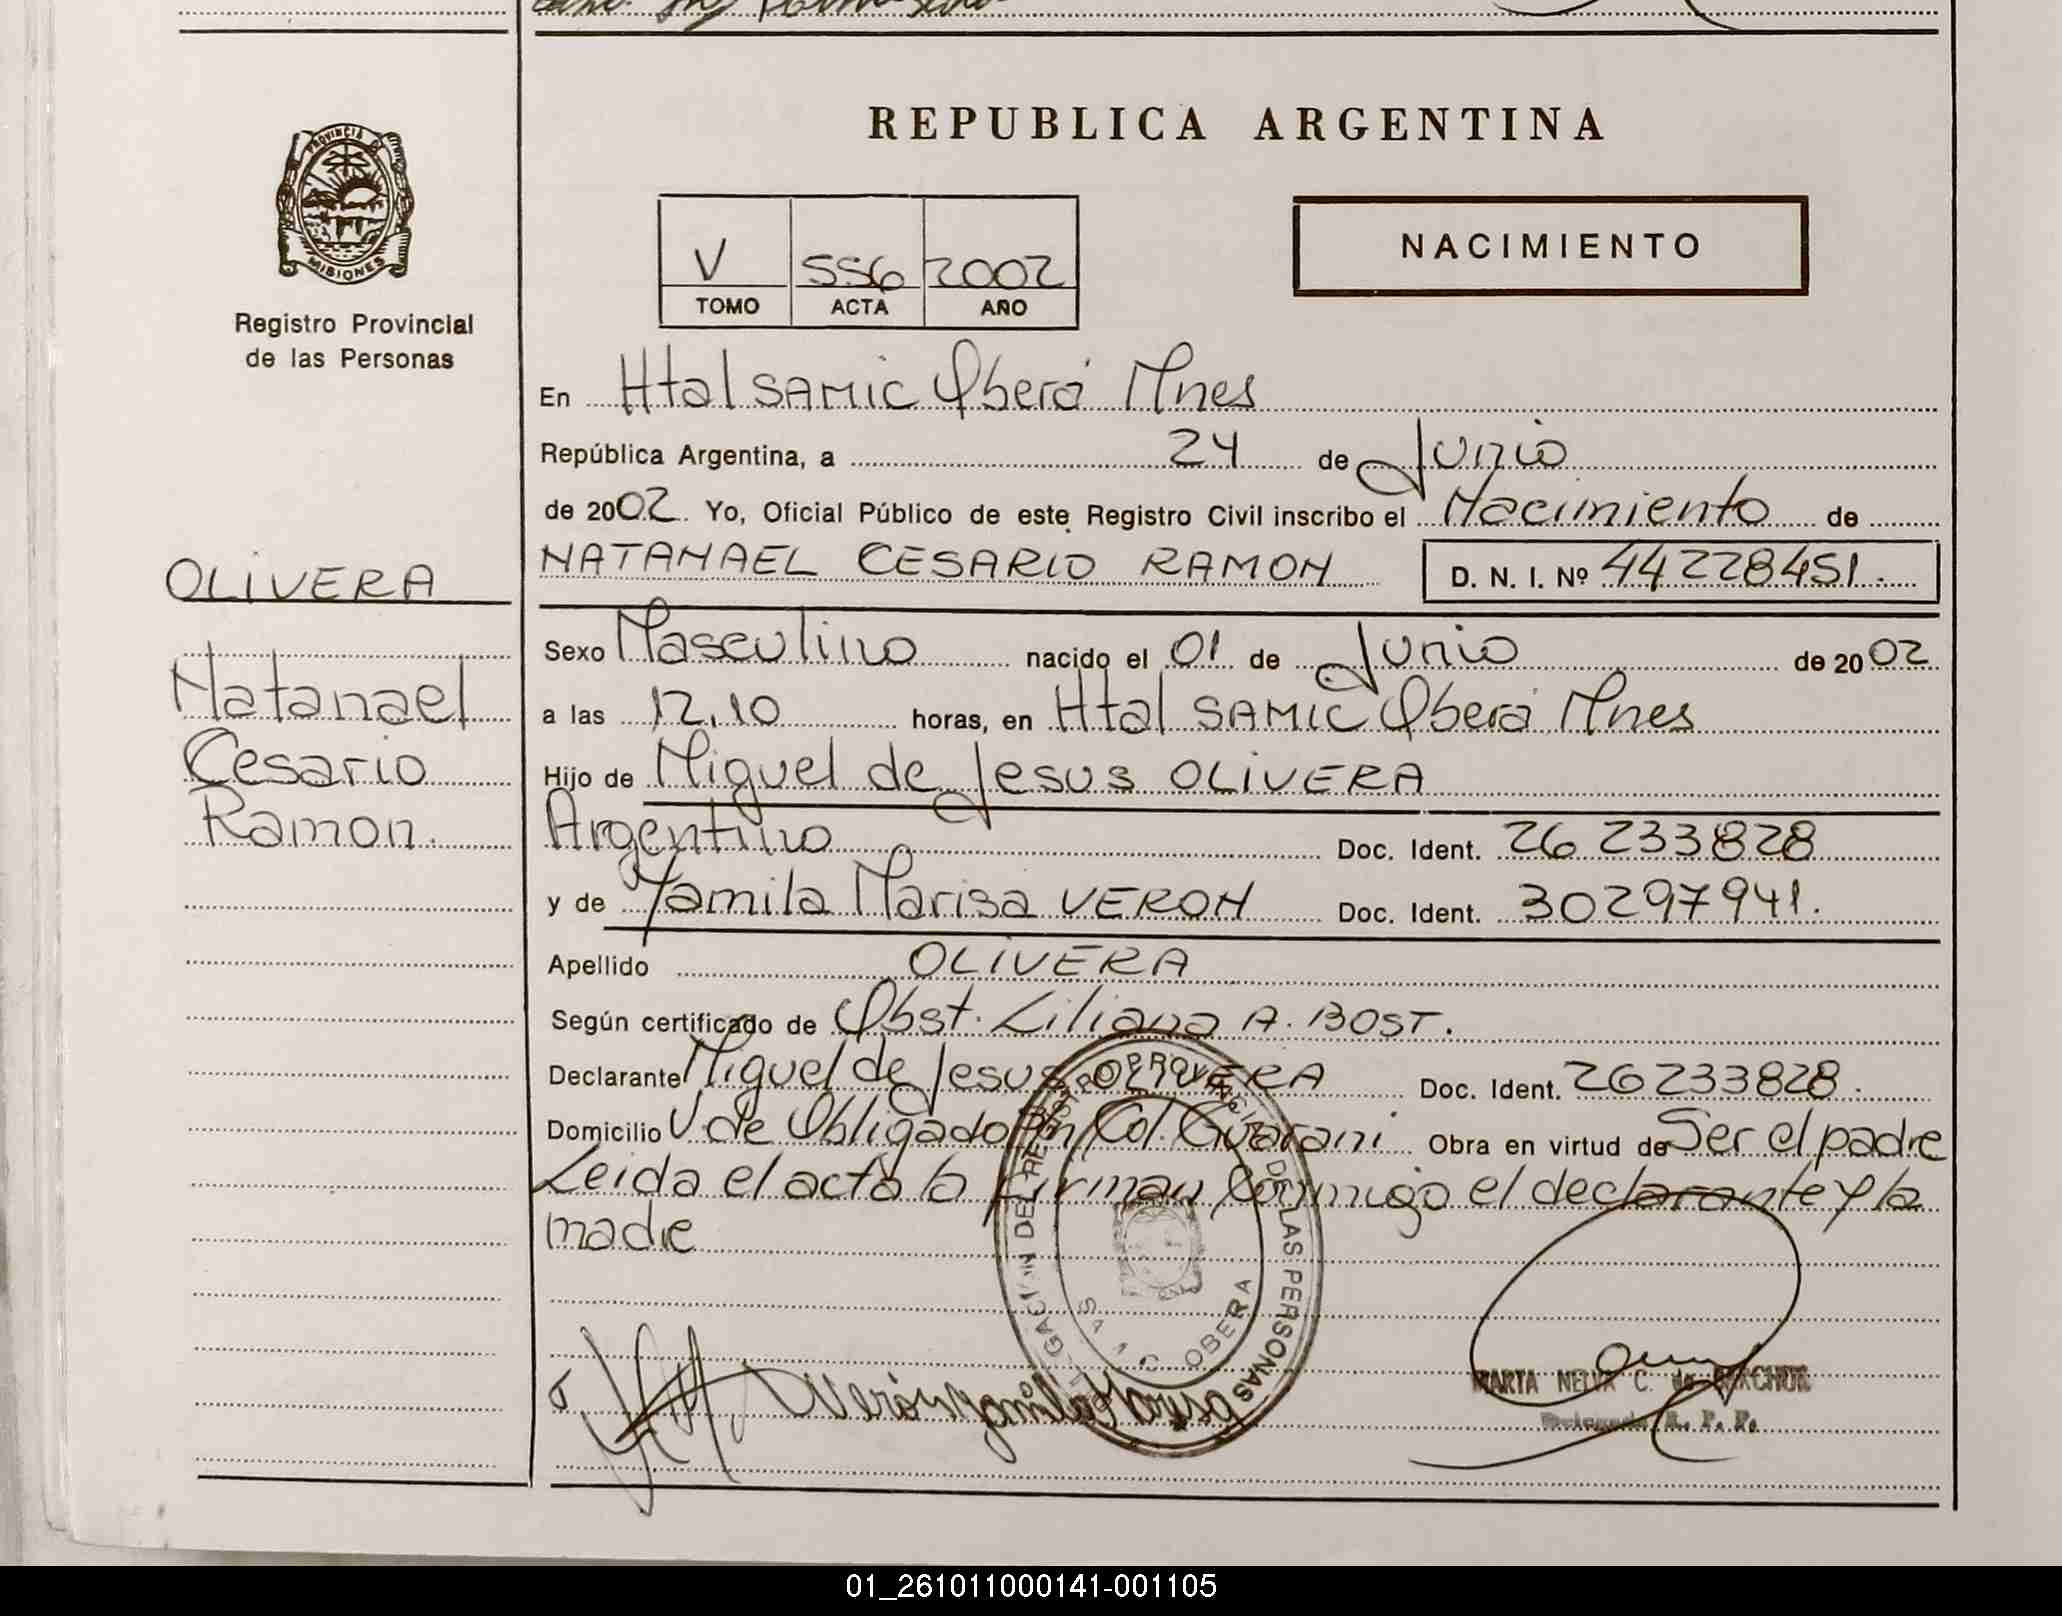 REPUBLICA ARGENTINA
PROVINCIA DE
MISIONES
Registro Provincial
de las Personas
NACIMIENTO
V 556 2002
TOMO ACTA AÑO
En Htal SAMIC Oberá Mnes
República Argentina, a 24 de Junio
de 2002. Yo, Oficial Público de este Registro Civil inscribo el Nacimiento de
NATANAEL CESARIO RAMON D. N. I. Nº 44228451.
OLIVERA
Natanael
Cesario
Ramon.
Sexo Masculino nacido el 01 de Junio de 2002
a las 12,10 horas, en Htal SAMIC Oberá Mnes
Hijo de Miguel de Jesus OLIVERA
Argentino Doc. Ident. 26 233828
y de Yamila Marisa VERON Doc. Ident. 30297941.
Apellido OLIVERA
Según certificado de Obst. Liliana A. BOST.
Declarante Miguel de Jesus OLIVERA Doc. Ident. 26233828.
Domicilio V. de Obligado S/n Col. Guarani Obra en virtud de Ser el padre
Leida el acta la firman Conmigo el declarante y la
madre
DELEGACION DEL REGISTRO PROVINCIAL DE LAS PERSONAS
OBERA
Verón Yamila
MARTA NELVA C. de
Delegada R. P. P.
01_261011000141-001105